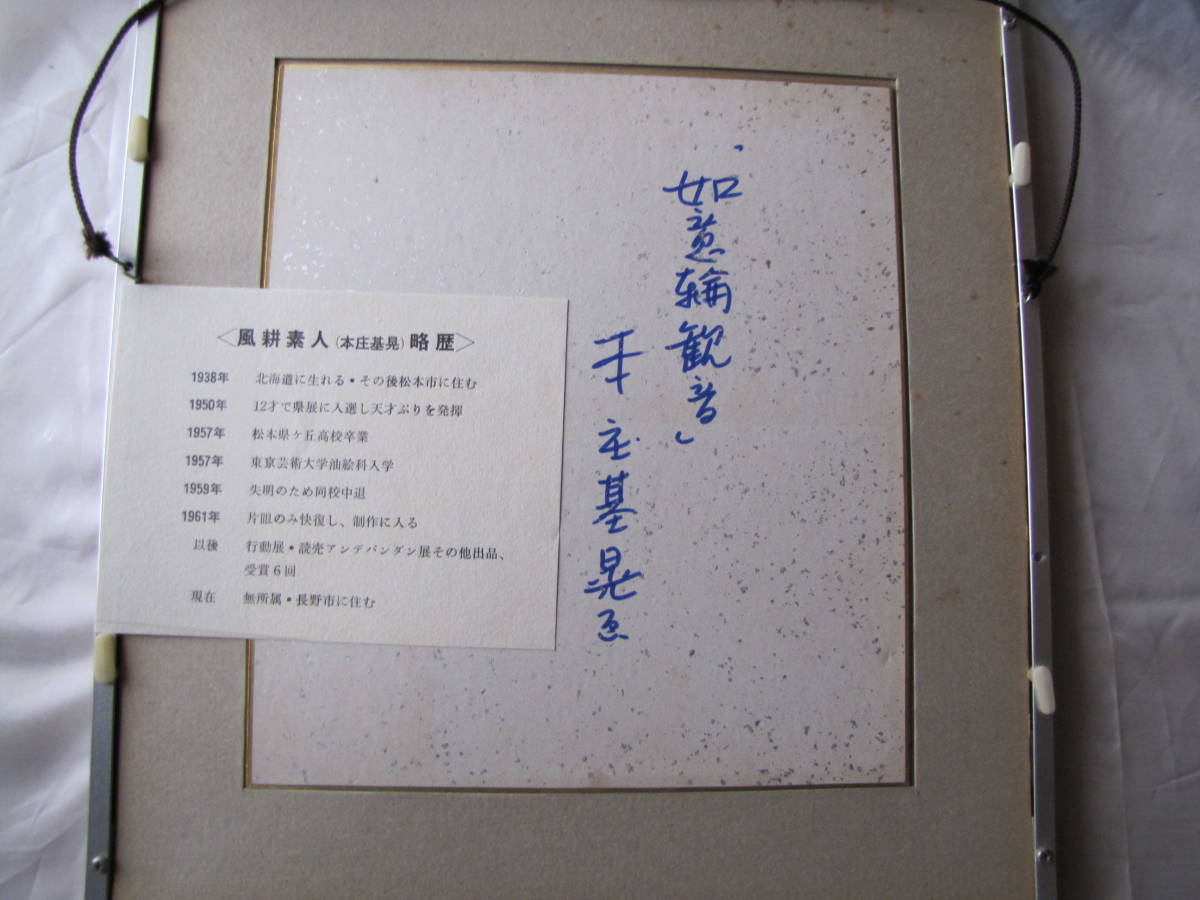 「如意輪観音」
本庄基晃画
〈風耕素人(本庄基晃)略歴〉
1938年 北海道に生れる・その後松本市に住む
1950年 12才で県展に入選し天才ぶりを発揮
1957年 松本県ケ丘高校卒業
1957年 東京芸術大学油絵科入学
1959年 失明のため同校中退
1961年 片眼のみ快復し、制作に入る
以後 行動展・読売アンデパンダン展その他出品、
受賞6回
現在 無所属・長野市に住む